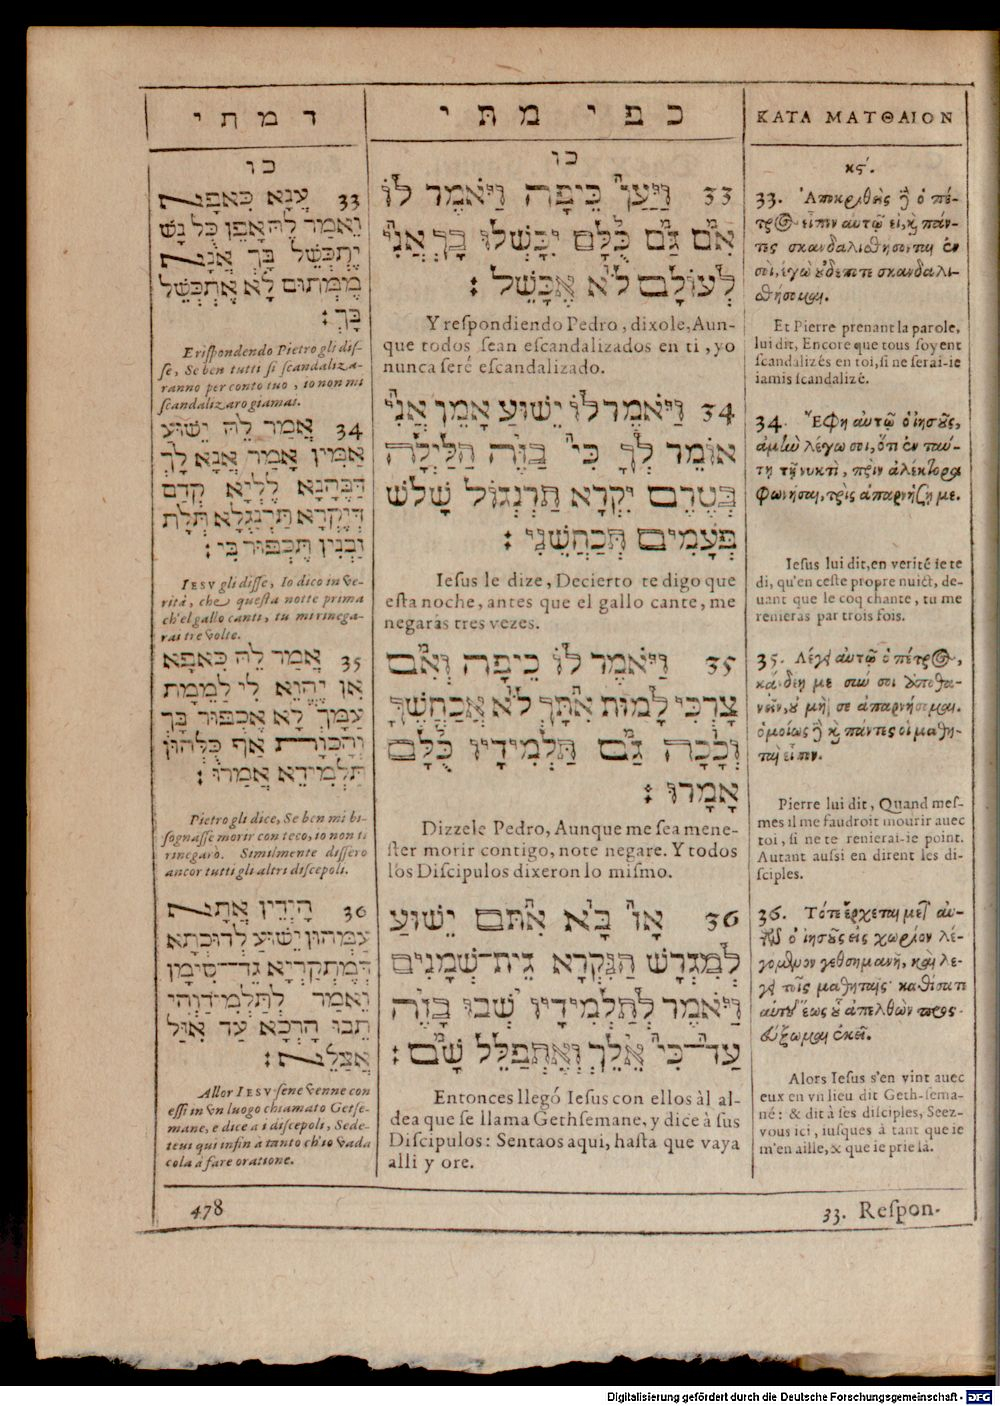 ד מ ת י
כו
33 עֲנָא כִּאפָא
וֶאֱמַר לֵהּ אָפֵן כֻּל נָשׁ
יֶתְּכְּשֵׁל בָּךְ אֲנָא
מִמְּתוּם לָא אֶתְכְּשֵׁל
בָּךְ :
E rispondendo Pietro gli dis-
se, Se ben tutti si scandaliza-
ranno per conto tuo, io non mi
scandalizaro giamai.
34 אֲמַר לֵהּ יֵשׁוּעַ
אַמִּין אָמַר אֲנָא לָךְ
דַּבְּהָנָא לֶלְיָא קְדָם
דְּיֶקְרָא תַּרְנָגְלָא תְּלָת
זַבְנִין תֶּכְפּוּר בִּי :
IESV gli disse, Io dico in ve-
rità, che questa notte prima
ch'el gallo canti, tu mi rinega-
rai tre volte.
35 אֲמַר לֵהּ כִּאפָא
אֵן יֶהֱוֵא לִי לַמֲמָת
עַמָּךְ לָא אֶכְפּוּר בָּךְ
וְהָכְוָת אַף כֻּלְּהוּן
תַּלְמִידֵא אֲמַרוּ :
Pietro gli dice, Se ben mi bi-
sognasse morir con teco, io non ti
rinegarò. Similmente dissero
ancor tutti gli altri discepoli.
36 הָיְדֵין אֲתָא
עַמְּהוּן יֵשׁוּעַ לְדוּכְתָא
דְּמֶתְקַרְיָא גֵד־סִימָן
וֶאֱמַר לְתַלְמִידַוְהִי
תֵּבוּ הָרְכָא עַד אִזַּל
אֲצַלֵּא :
Allor IESV sene venne con
essi in un luogo chiamato Getse-
mane, e dice a i discepoli, Sede-
teui qui infin à tanto ch'io vada
cola à fare oratione.
כ פ י מ תּ י
כו
33 וַיַּעַן כֵּיפָה וַיֹּאמֶר לוֹ
אִם גַּם כֻּלָּם יִכָּשְׁלוּ בָךְ אֲנִי
לְעוֹלָם לֹא אֶכָּשֵׁל :
Y respondiendo Pedro, dixole, Aun-
que todos sean escandalizados en ti, yo
nunca seré escandalizado.
34 וַיֹּאמֶר לוֹ יֵשׁוּעַ אָמֵן אֲנִי
אוֹמֵר לְךָ כִּי בַּזֶּה הַלַּיְלָה
בְּטֶרֶם יִקְרָא תַּרְנְגוֹל שָׁלֹשׁ
פְּעָמִים תְּכַחֲשֵׁנִי :
Iesus le dize, Decierto te digo que
esta noche, antes que el gallo cante, me
negarás tres vezes.
35 וַיֹּאמֶר לוֹ כֵיפָה וְאִם
צָרְכִּי לָמוּת אִתָּךְ לֹא אֲכַחֲשֶׁךָּ
וְכָכָה גַּם תַּלְמִידָיו כֻּלָּם
אָמָרוּ :
Dizzele Pedro, Aunque me sea mene-
ster morir contigo, note negare. Y todos
los Discipulos dixeron lo mismo.
36 אָז בָּא אִתָּם יֵשׁוּעַ
לְמִגְרָשׁ הַנִּקְרָא גֵית־שְׁמָנִים
וַיֹּאמֶר לְתַלְמִידָיו שְׁבוּ בָּזֶה
עַד־כִּי אֵלֵךְ וְאֶתְפַּלֵּל שָׁם :
Entonces llegó Iesus con ellos àl al-
dea que se llama Gethsemane, y dice à sus
Discipulos: Sentaos aqui, hasta que vaya
alli y ore.
ΚΑΤΑ ΜΑΤΘΑΙΟΝ
κϛ΄.
33. Ἀποκριθεὶς δὲ ὁ πέ-
τρος εἶπεν αὐτῷ εἰ, καὶ πάν-
τες σκανδαλισθήσονται ἐν
σοὶ, ἐγὼ οὐδέποτε σκανδαλι-
σθήσομαι.
Et Pierre prenant la parole,
lui dit, Encore que tous soyent
scandalizés en toi, si ne serai-ie
iamis scandalizé.
34. Ἔφη αὐτῷ ὁ ἰησοῦς,
ἀμὴν λέγω σοι, ὅτι ἐν ταύ-
τῃ τῇ νυκτὶ, πρὶν ἀλέκτορα
φωνῆσαι, τρὶς ἀπαρνήσῃ με.
Iesus lui dit, en verité ie te
di, qu'en ceste propre nuict, de-
uant que le coq chante, tu me
renieras par trois fois.
35. Λέγει αὐτῷ ὁ πέτρος,
κἂν δέῃ με σὺν σοὶ ἀποθα-
νεῖν, οὐ μή σε ἀπαρνήσομαι.
ὁμοίως δὲ καὶ πάντες οἱ μαθη-
ταὶ εἶπον.
Pierre lui dit, Quand mes-
mes il me faudroit mourir auec
toi, si ne te renierai-ie point.
Autant aussi en dirent les di-
sciples.
36. Τότε ἔρχεται μετ' αὐ-
τῶν ὁ ἰησοῦς εἰς χωρίον λε-
γόμενον γεθσημανῆ, καὶ λέ-
γει τοῖς μαθηταῖς· καθίσατε
αὐτοῦ ἕως οὗ ἀπελθὼν προσ-
εύξωμαι ἐκεῖ.
Alors Iesus s'en vint auec
eux en vn lieu dit Geth-sema-
né: & dit à ses disciples, Seez-
vous ici, iusques à tant que ie
m'en aille, & que ie prie là.
478
33. Respon-
Digitalisierung gefördert durch die Deutsche Forschungsgemeinschaft - DFG